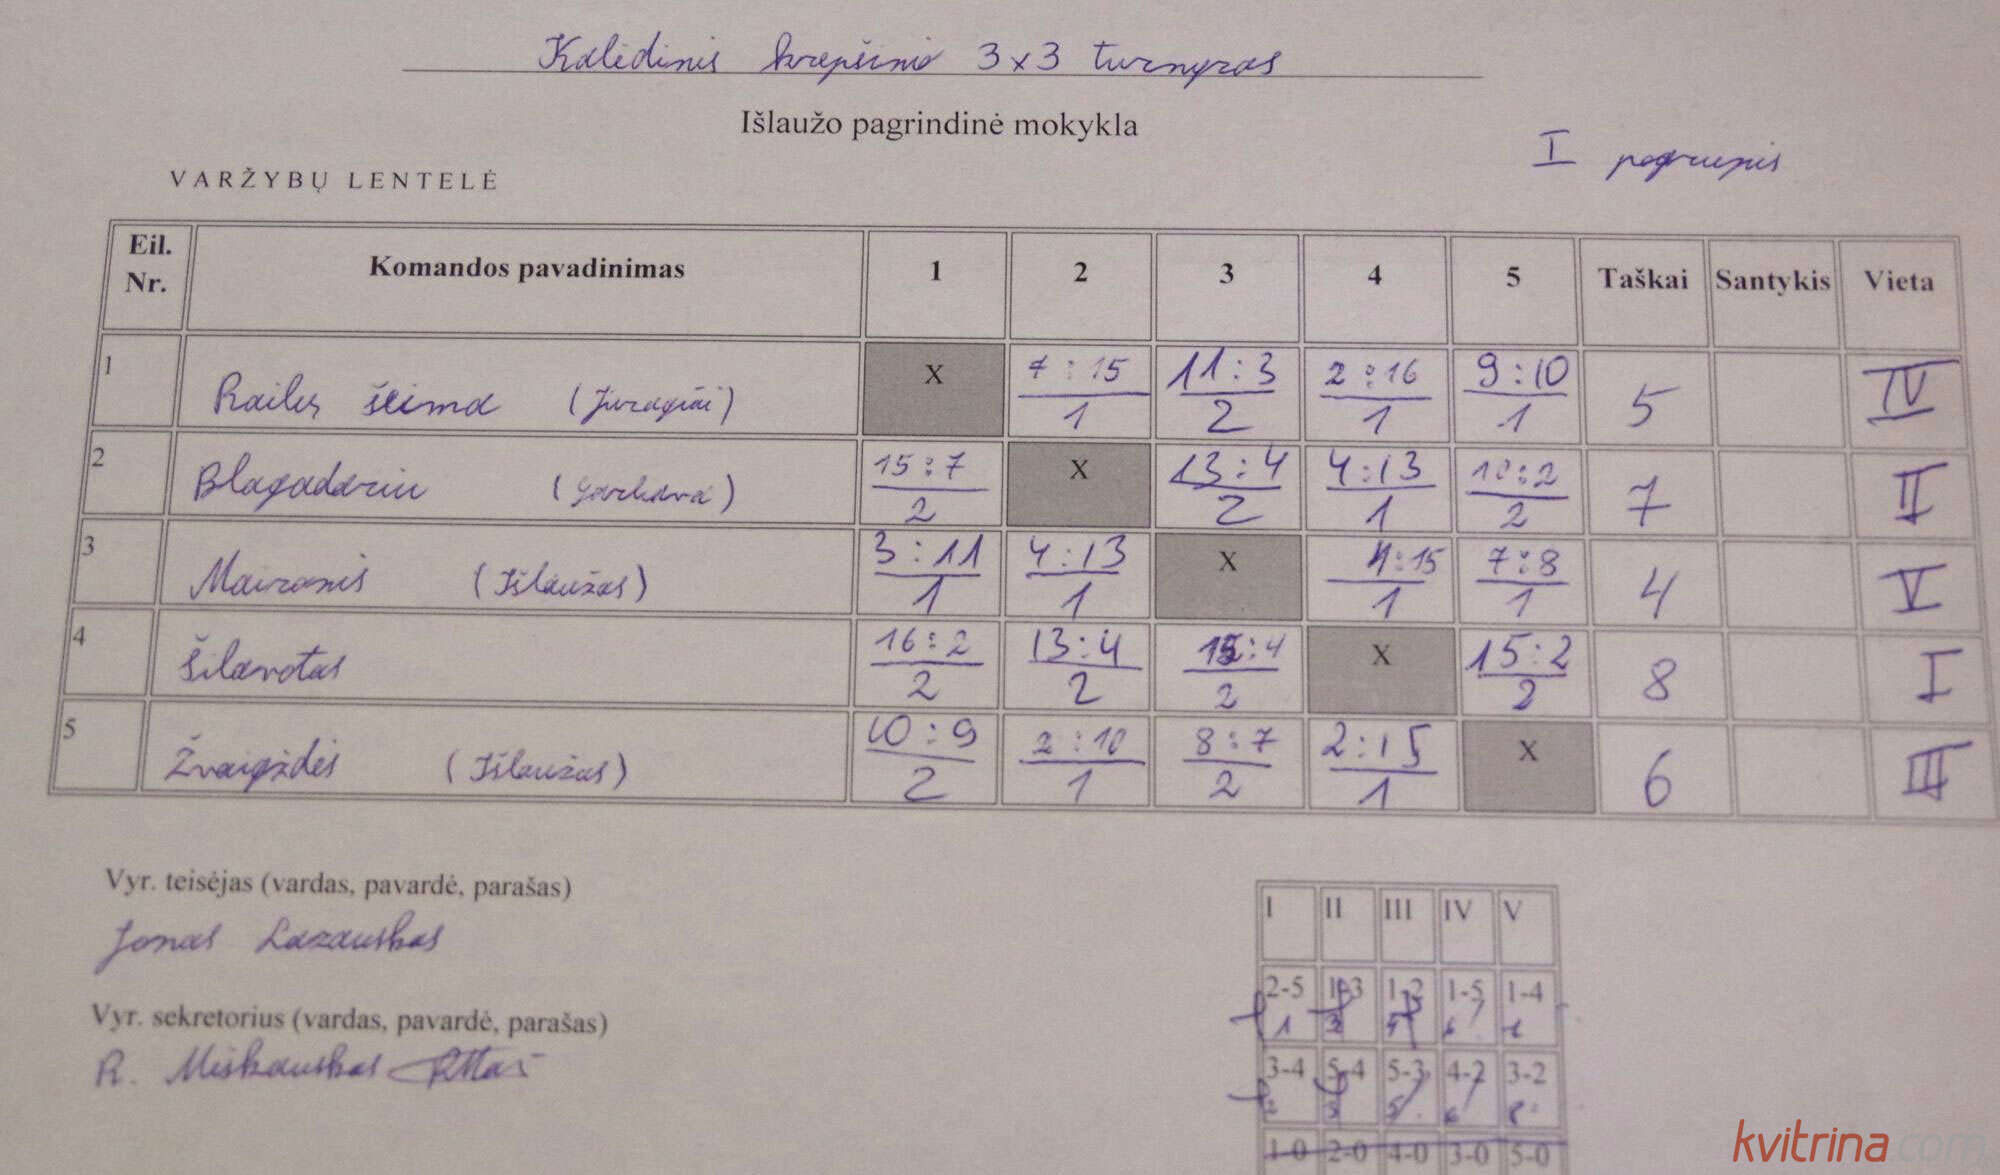 Kalėdinis krepšinio 3x3 turnyras
Išlaužo pagrindinė mokykla
I pogrupis
VARŽYBŲ LENTELĖ
Eil. Nr. Komandos pavadinimas 1 2 3 4 5 Taškai Santykis Vieta
1 Railų šeima (Juragiai) X 7:15 1 11:3 2 2:16 1 9:10 1 5 IV
2 Blagadariu (Garliava) 15:7 2 X 13:4 2 4:13 1 10:2 2 7 II
3 Maironis (Išlaužas) 3:11 1 4:13 1 X 4:15 1 7:8 1 4 V
4 Šilavotas 16:2 2 13:4 2 15:4 2 X 15:2 2 8 I
5 Žvaigždės (Išlaužas) 10:9 2 2:10 1 8:7 2 2:15 1 X 6 III
Vyr. teisėjas (vardas, pavardė, parašas)
Jonas Lazauskas
Vyr. sekretorius (vardas, pavardė, parašas)
R. Miškauskas
I II III IV V
2-5 1-3 1-2 1-5 1-4
3-4 5-4 5-3 4-2 3-2
1-0 2-0 4-0 3-0 5-0
kvitrina.com